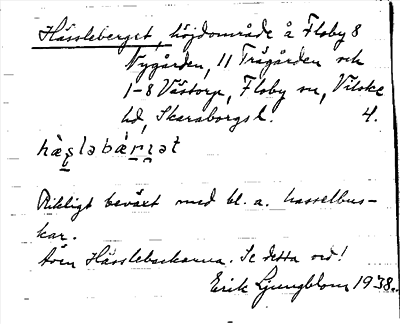 Hässleberget, höjdområde å Floby 8
Nygården, 11 Trägården och
1-8 Västorp, Floby sn, Vilske
hd, Skaraborgs l. 4.
Rikligt beväxt med bl. a. hasselbus-
kar.
Även Hässlebackarna. Se detta ord!
Erik Ljungblom 1938.